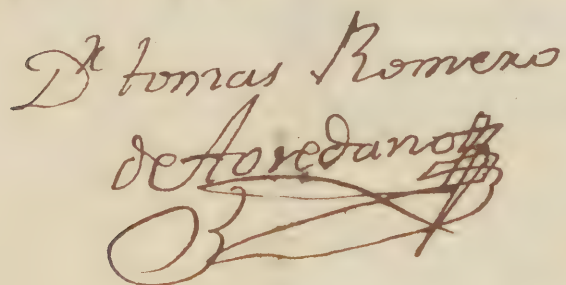 Dr tomas Romero
de Aoredano